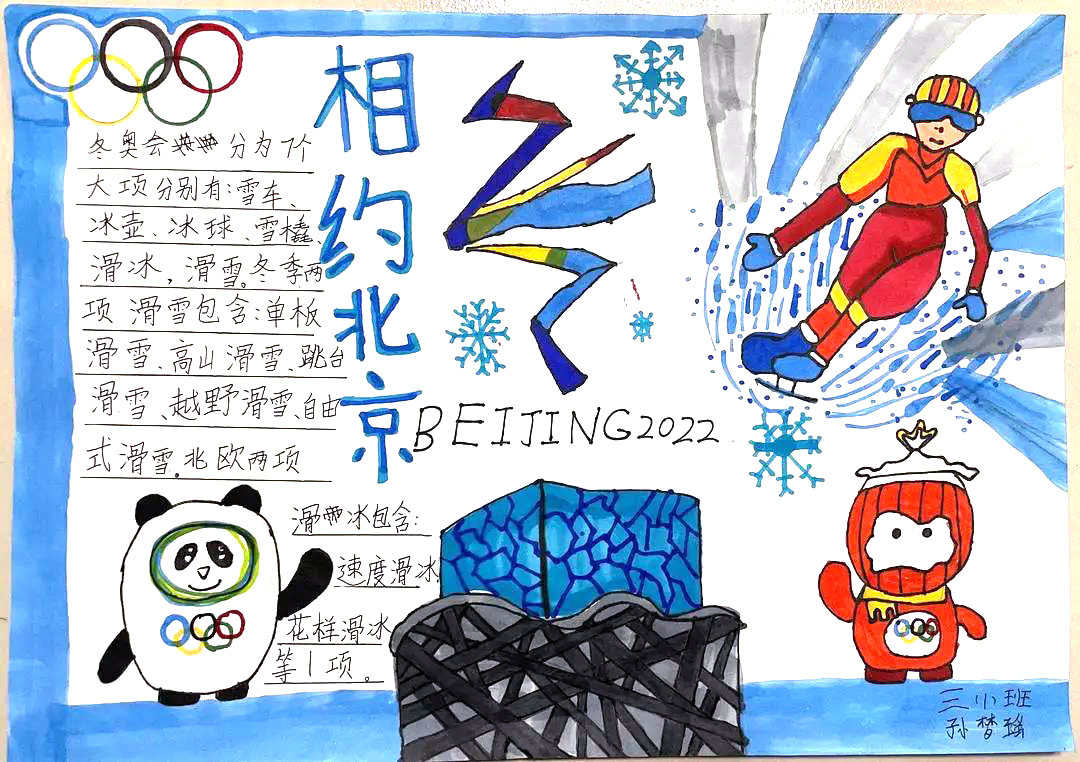 相约北京
冬奥会分为7个
大项分别有:雪车、
冰壶、冰球、雪橇、
滑冰,滑雪。冬季两
项 滑雪包含:单板
滑雪、高山滑雪、跳台
滑雪、越野滑雪、自由
式滑雪。北欧两项
BEIJING2022
滑冰包含:
速度滑冰
花样滑冰
等1项。
三小班
孙梦瑶